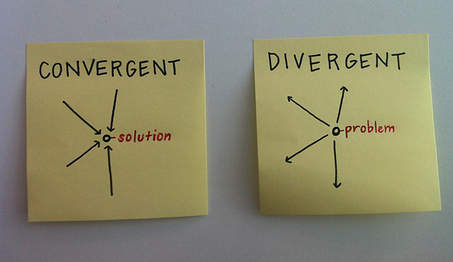 CONVERGENT
solution
DIVERGENT
problem